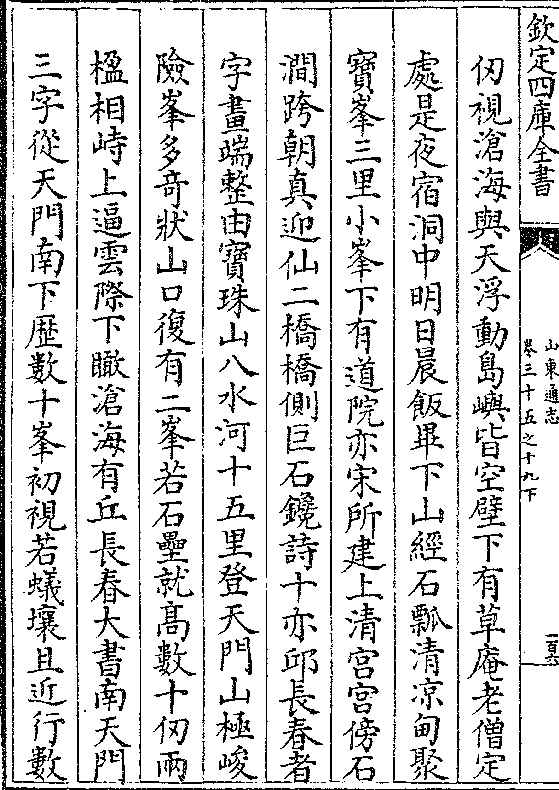 欽定四庫全書
山東通志
卷三十五之十九下
仞視滄海與天浮動島嶼皆空壁下有草庵老僧定
處是夜宿洞中明日晨飯畢下山經石瓢清凉甸聚
寶峯三里小峯下有道院亦宋所建上清宮宮傍石
澗跨朝真迎仙二橋橋側巨石鑱詩十亦邱長春者
字畫端整由寶珠山八水河十五里登天門山極峻
險峯多奇狀山口復有二峯若石壘就高數十仞兩
楹相峙上逼雲際下瞰滄海有丘長春大書南天門
三字從天門南下歴數十峯初視若蟻壤且近行數